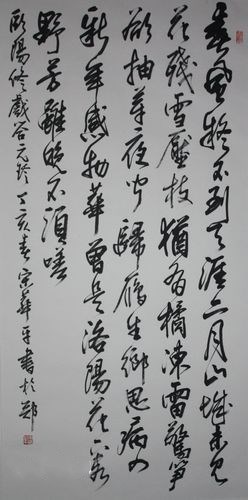 春風疑不到天涯二月山城未見
花殘雪壓枝猶有橘凍雷驚笋
欲抽芽夜聞歸雁生鄉思病入
新年感物華曾是洛陽花下客
野芳雖晚不須嗟
歐陽修戲答元珍 丁亥春宋華平書於鄭